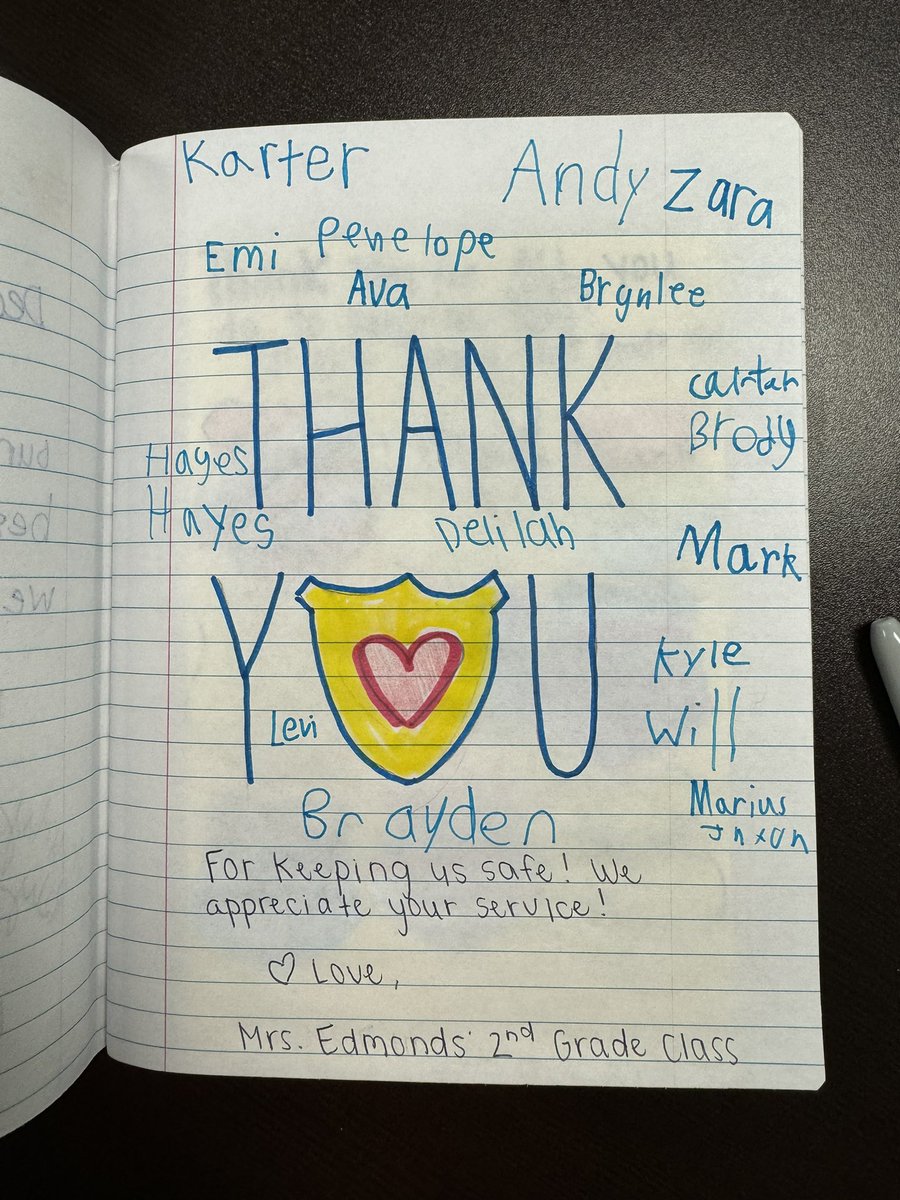 Karter
Andy Zara
Emi Penelope
Ava Brynlee
THANK
Carter
Brody
Hayes
Hayes
Delilah
Mark
Y U
Kyle
Levi
Will
Marius
Brayden
For keeping us safe! We
appreciate your service!
♡ Love,
Mrs. Edmonds' 2nd Grade Class